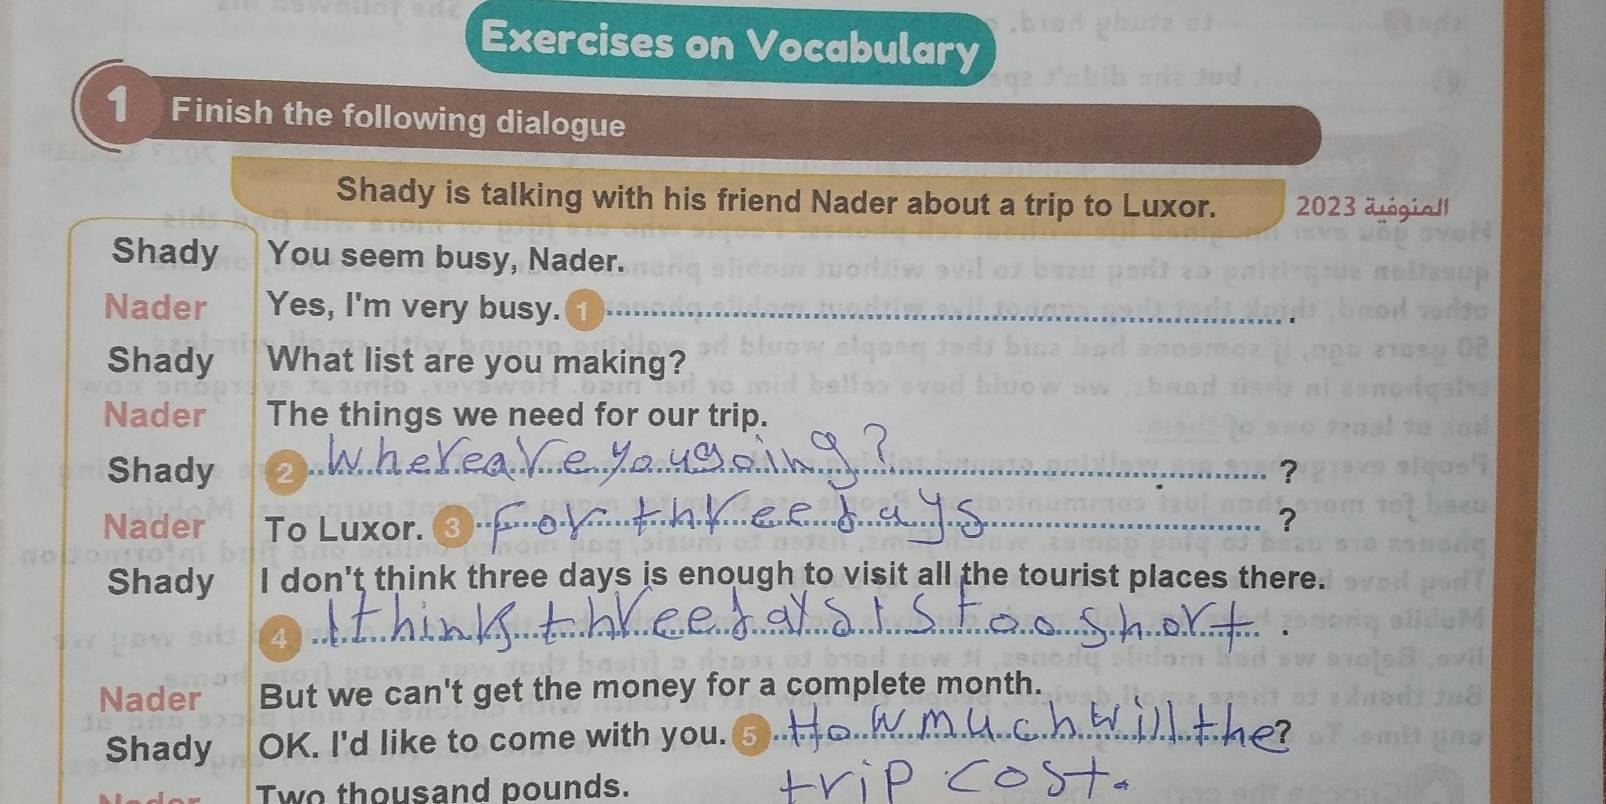 Exercises on Vocabulary
1 Finish the following dialogue
Shady is talking with his friend Nader about a trip to Luxor. المنوفية 2023
Shady You seem busy, Nader.
Nader Yes, I'm very busy. 1 .
Shady What list are you making?
Nader The things we need for our trip.
Shady 2 Where are you going? ?
Nader To Luxor. 3 For three days ?
Shady I don't think three days is enough to visit all the tourist places there.
4 I think three days is too short .
Nader But we can't get the money for a complete month.
Shady OK. I'd like to come with you. 5 How much will the ?
trip cost.
Nader Two thousand pounds.